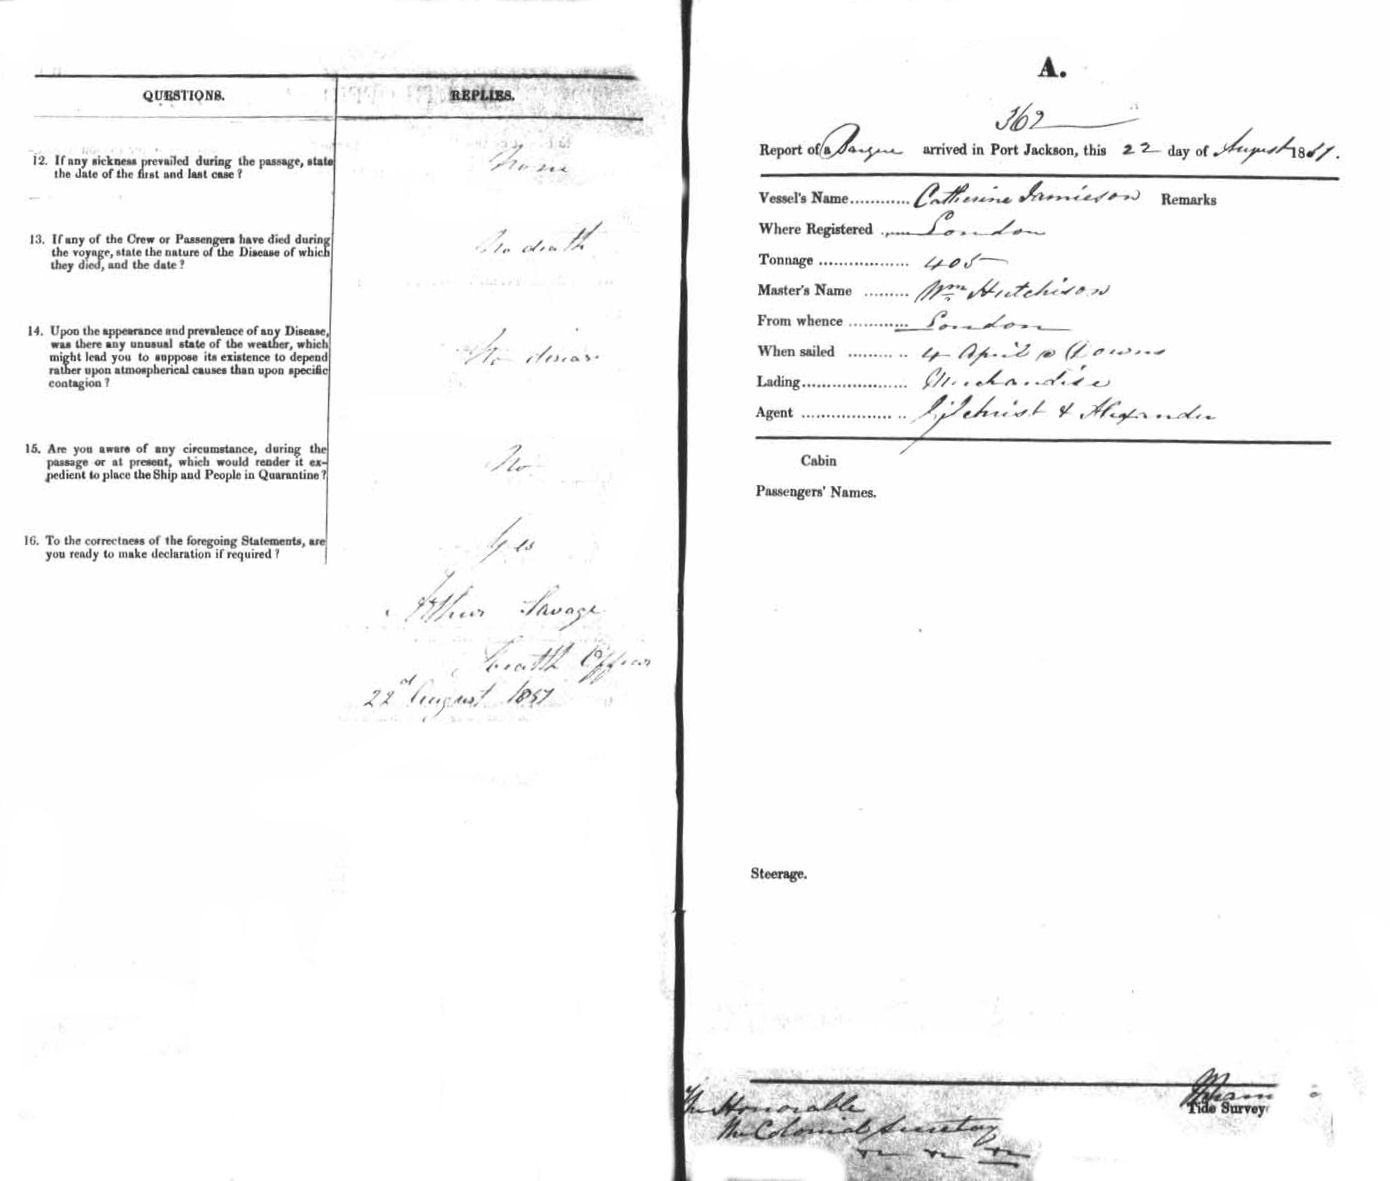 QUESTIONS.
REPLIES.
12. If any sickness prevailed during the passage, state
the date of the first and last case?
None
13. If any of the Crew or Passengers have died during
the voyage, state the nature of the Disease of which
they died, and the date?
No death
14. Upon the appearance and prevalence of any Disease,
was there any unusual state of the weather, which
might lead you to suppose its existence to depend
rather upon atmospherical causes than upon specific
contagion?
No disease
15. Are you aware of any circumstance, during the
passage or at present, which would render it ex-
pedient to place the Ship and People in Quarantine?
No
16. To the correctness of the foregoing Statements, are
you ready to make declaration if required?
Yes
Arthur Savage
Health Officer
22d August 1857
A.
362
Report of a Barque arrived in Port Jackson, this 22 day of August 1857.
Vessel's Name............ Catherine Jamieson Remarks
Where Registered ...... London
Tonnage .................. 405
Master's Name ......... Wm Hutchison
From whence ............ London
When sailed ......... .. 4 April @ Downs
Lading..................... Merchandise
Agent .................. .. Gilchrist & Alexander
Cabin
Passengers' Names.
Steerage.
The Honorable
The Colonial Secretary
Tide Survey